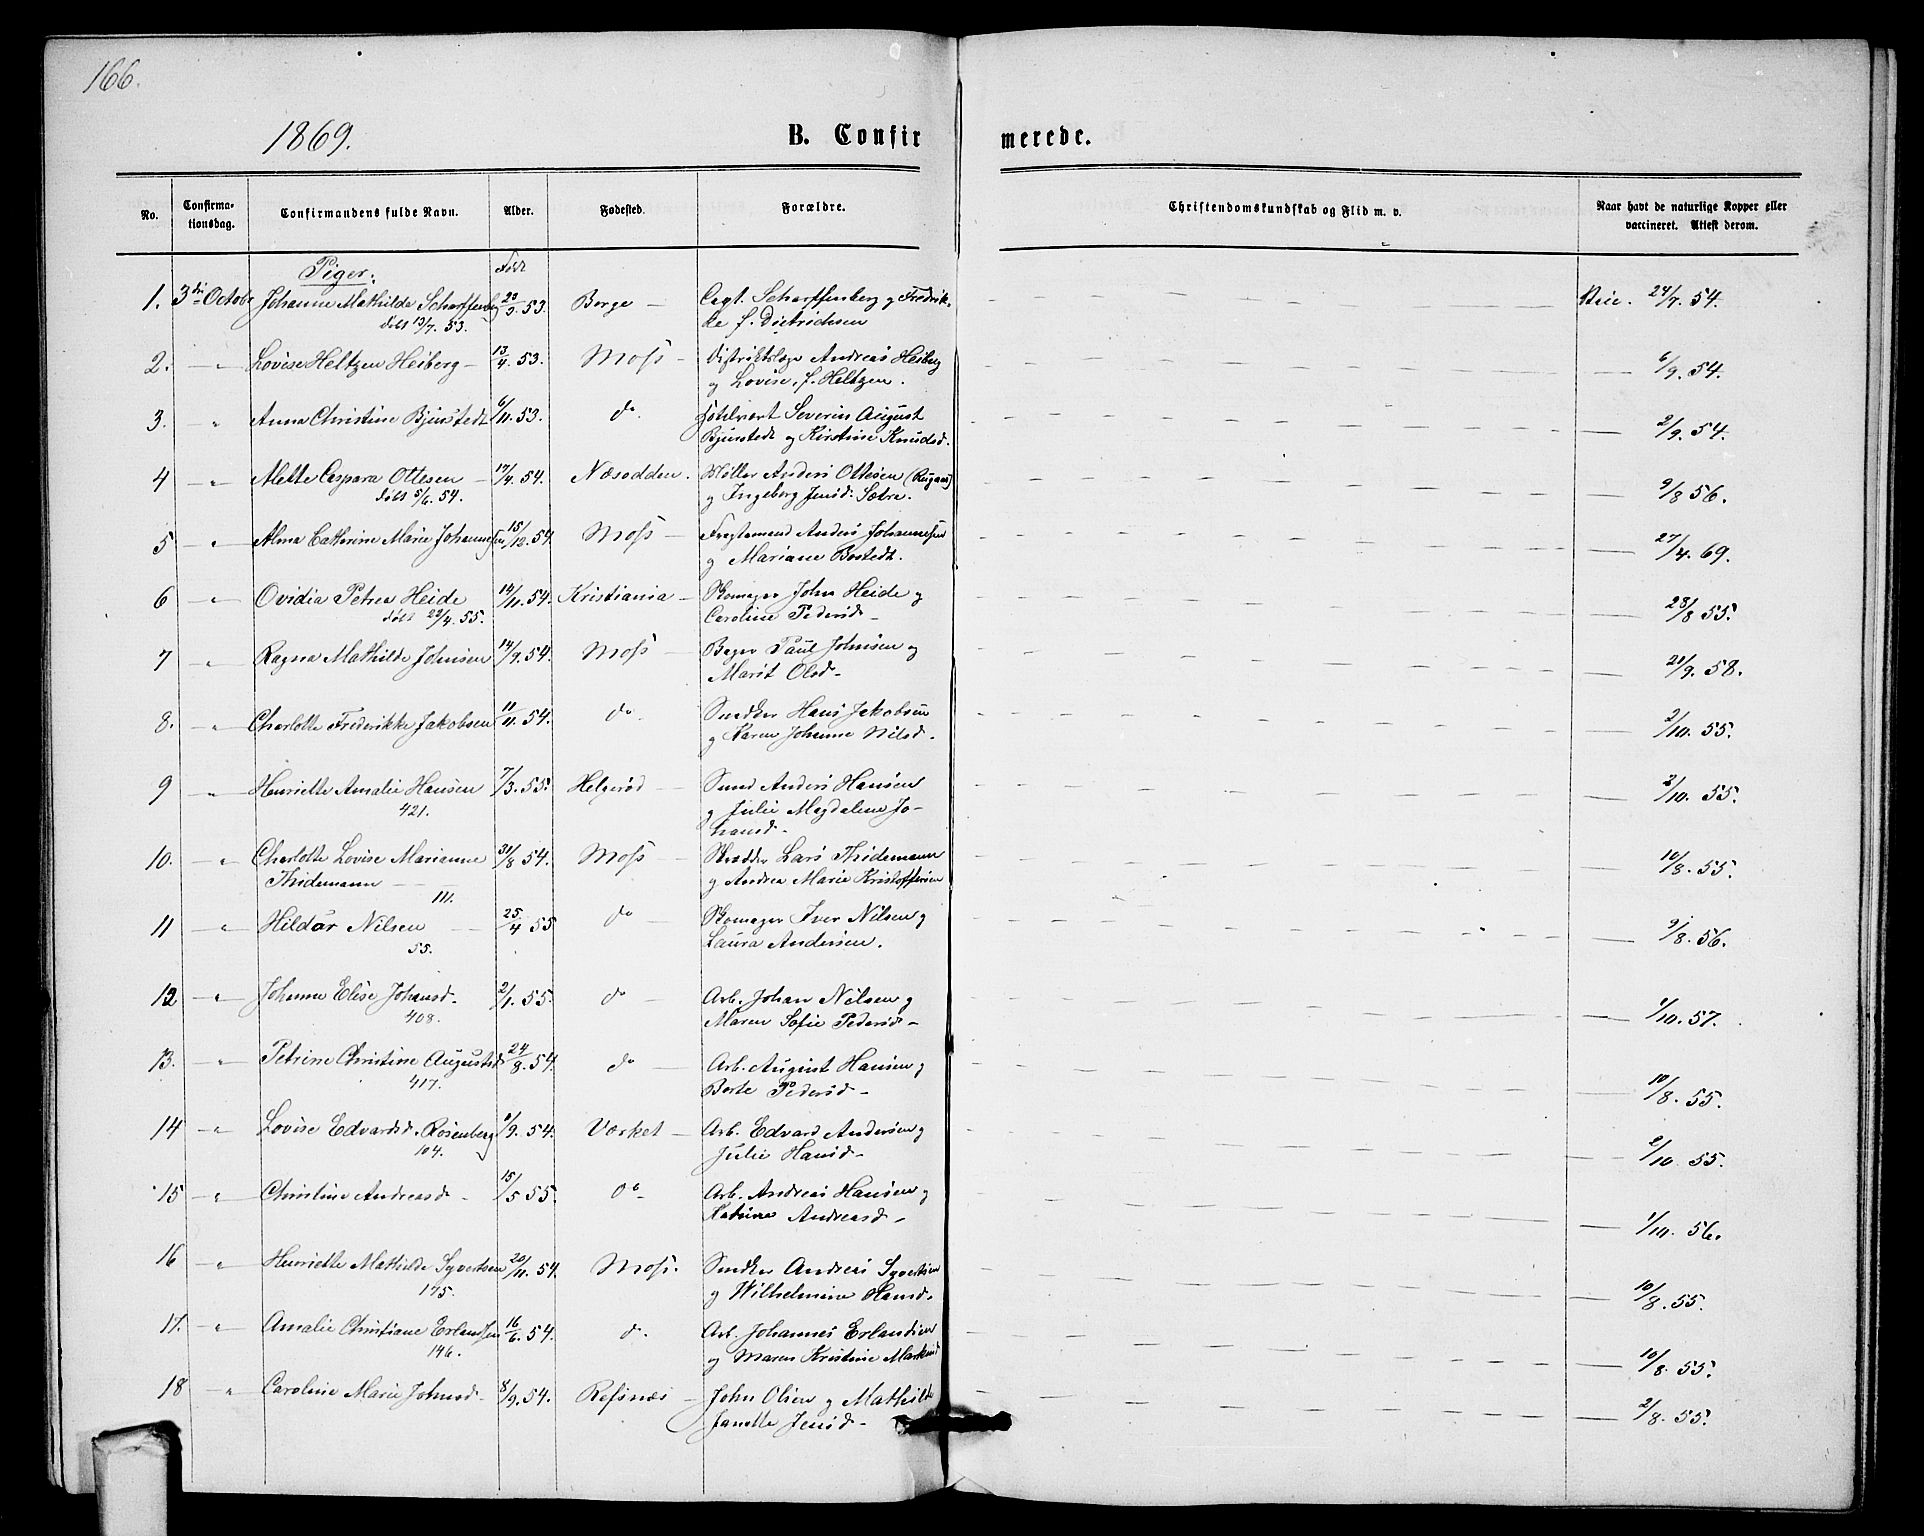 166.
1869.
B. Confir
merede.
No.
Confirma-
tionsdag.
Confirmandens fulde Navn.
Alder.
Fødested.
Forældre.
Christendomskundskab og Flid m. v.
Naar havt de naturlige Kopper eller
vaccineret. Attest derom.
Piger.
Født
1. 3die Octobr Johanne Mathilde Scharffenberg /3 53. Borge — Capt. Scharffenberg og Fredrik-
døbt 13/7. 53. ke f. Dietrichsen
24/7. 54.
2. —"— Lovise Heltzen Heiberg — 13/4. 53. Moss — Distriktslæge Andreas Heiberg
og Lovise, f. Heltzen.
— 6/9. 54.
3. " Anna Christine Bjurstedt 6/11. 53. do. Hotelvært Severin August
Bjurstedt og Kirstine Knudsd.
— 2/9. 54.
4 —"— Mette Caspara Ottesen — 17/4. 54. Næsodden. Møller Anders Ottesen
døbt 5/6. 54. og Ingeborg Jensd. Sætre.
— 9/8 56.
5 —"— Alma Cathrine Marie Johannesen 15/12. 54 Moss — Fragtemand Anders Johannesen
og Mariane Bostedt.
— 27/4. 69.
6 —"— Ovidia Petrea Heide 14/11. 54. Kristiania — Skomager John Heide og
døbt 22/4. 55. Caroline Pedersd —
— 28/8 55.
7 —"— Ragna Mathilde Johnsen 14/9. 54. Moss — Bager Paul Johnsen og
Marit Olsd —
— 21/9. 58.
8. —"— Charlotte Frederikke Jakobsen 11/11. 54. do. Snedker Hans Jakobsen
og Karen Johanne Nilsd.
— 2/10. 55.
9 —"— Henriette Amalie Hansen 7/3. 55. Helgerød — Smed Anders Hansen
421. og Julie Magdalene Jo-
hansd —
— 2/10. 55.
10. —"— Charlotte Lovise Marianne 31/8 54. Moss — Skrædder Lars Thidemann
Thidemann — og Andrea Marie Kristoffersen
111.
— 10/8. 55.
11 —"— Hildar Nilsen — 25/4 55 do — Skomager Iver Nilsen og
55. Laura Andersen.
— 9/8. 56.
12 —"— Johanne Elise Johansd. 2/1. 55. do — Arb. Johan Nilsen og
408. Maren Sofie Pedersd —
— 1/10. 57.
13. —"— Petrine Christine Augustsd 24/8. 54. do — Arb. August Hansen og
417. Berte Pedersd —
— 10/8. 55.
14 —"— Lovise Edvardsd. Rosenberg /9. 54. Værket — Arb. Edvard Andersen og
104. Julie Hansd —
— 2/10 55.
15 —"— Christine Andreasd — 15/5 55. do — Arb. Andreas Hansen og
Katrine Andreasd —
— 1/10. 56.
16 —"— Henriette Mathilde Syvertsen 20/11. 54. Moss. Snedker Andreas Syvertsen
175. og Wilhelmine Hansd.
— 10/8. 55.
17. —"— Amalie Christiane Erlandsen 16/6. 54. do. Arb. Johannes Erlandsen
146. og Maren Kristine
— 10/8. 55.
18 —"— Caroline Marie Johnsd — 8/9. 54. Refsnæs — John Olsen og Mathilde
Janette Jensd —
— 2/8. 55.